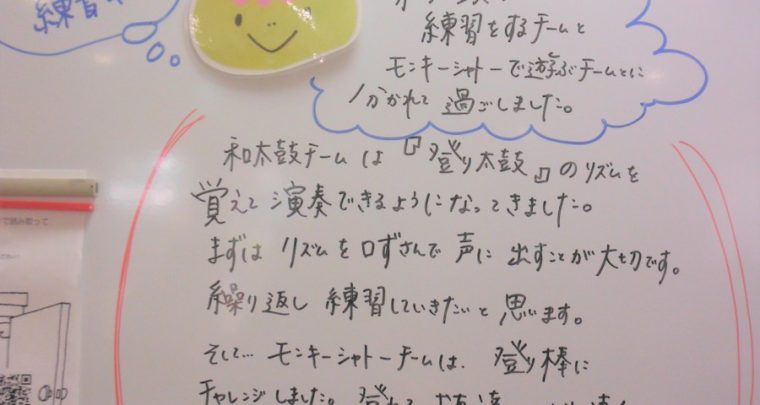 練習
練習をするチームと
モンキーシャトーで遊ぶチームとに
分かれて過ごしました。
和太鼓チームは『登り太鼓』のリズムを
覚えて演奏できるようになってきました。
まずはリズムを口ずさんで声に出すことが大切です。
繰り返し練習していきたいと思います。
そして…モンキーシャトーチームは、登り棒に
チャレンジしました。